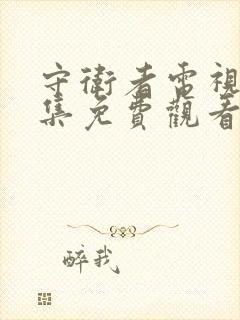 守衛者電視
集免費觀看
醉我